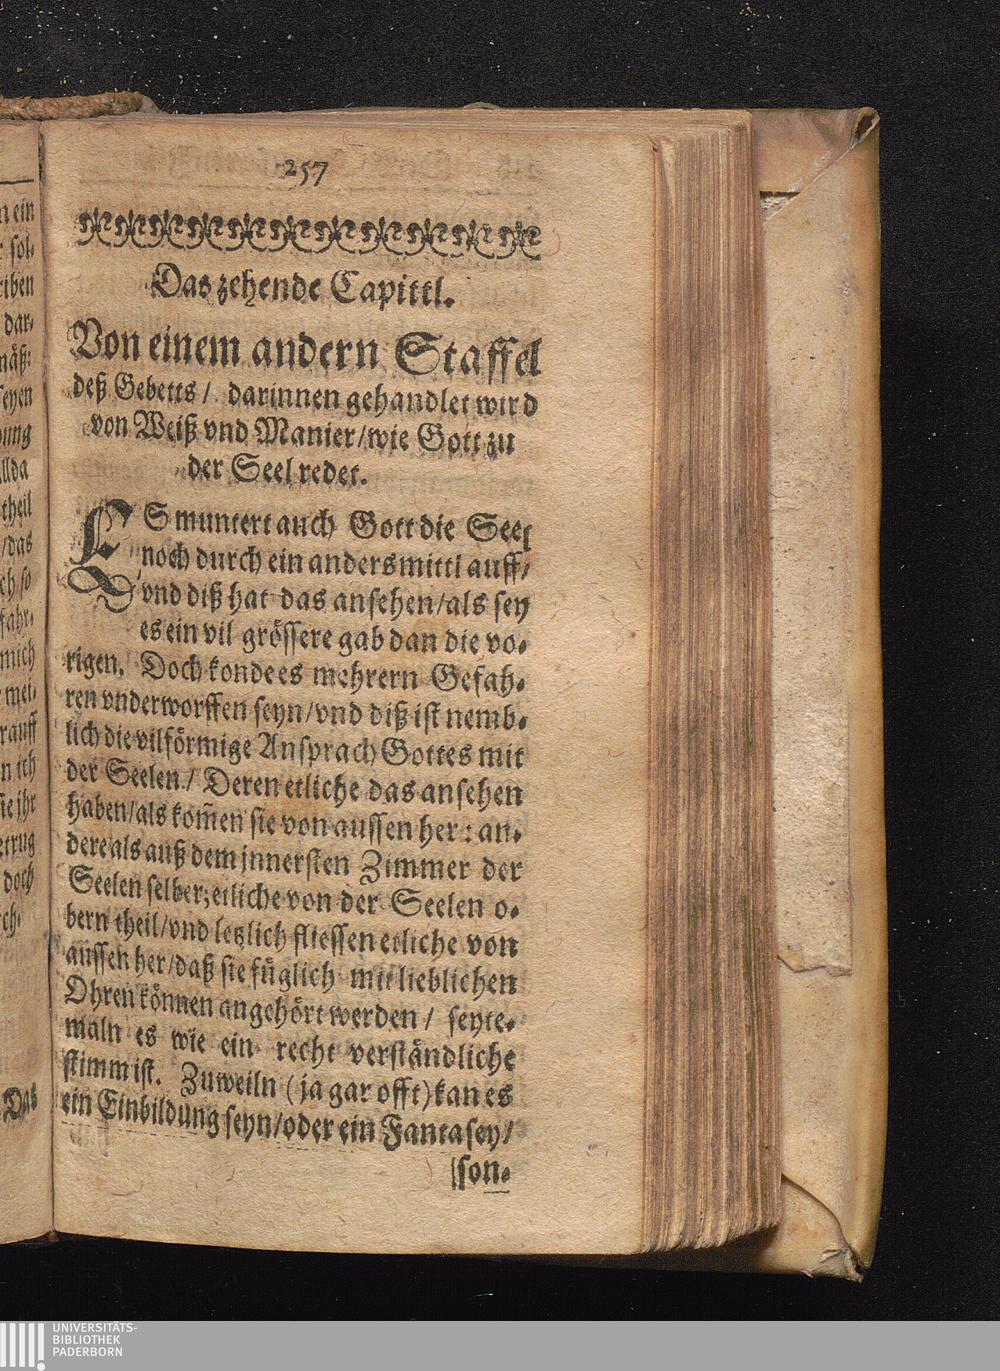 257
Das zehende Capittl.
Von einem andern Staffel
deß Gebetts / darinnen gehandlet wird
von Weiß vnd Manier / wie Gott zu
der Seel redet.
ES muntert auch Gott die Seel
noch durch ein anders mittl auff /
vnd diß hat das ansehen / als sey
es ein vil grössere gab dan die vo-
rigen. Doch konde es mehrern Gefah-
ren vnderworffen seyn / vnd diß ist nemb-
lich die vilförmige Ansprach Gottes mit
der Seelen / Deren etliche das ansehen
haben / als kom̃en sie von aussen her : an-
dere als auß dem jnnersten Zimmer der
Seelen selber; etliche von der Seelen o-
bern theil / vnd letzlich fliessen etliche von
aussen her / daß sie füglich mit lieblichen
Ohren können angehört werden / seyte-
maln es wie ein recht verständliche
stimm ist. Zuweiln ( ja gar offt ) kan es
ein Einbildung seyn / oder ein Fantasey /
son-
n ein
sol-
riben
dar-
mäß:
seyen
bung
allda
theil
/ das
ch so
fahr-
mich
mei-
rauff
n ich
sie jhr
etrug
doch
ch-
Das
UNIVERSITÄTS-
BIBLIOTHEK
PADERBORN